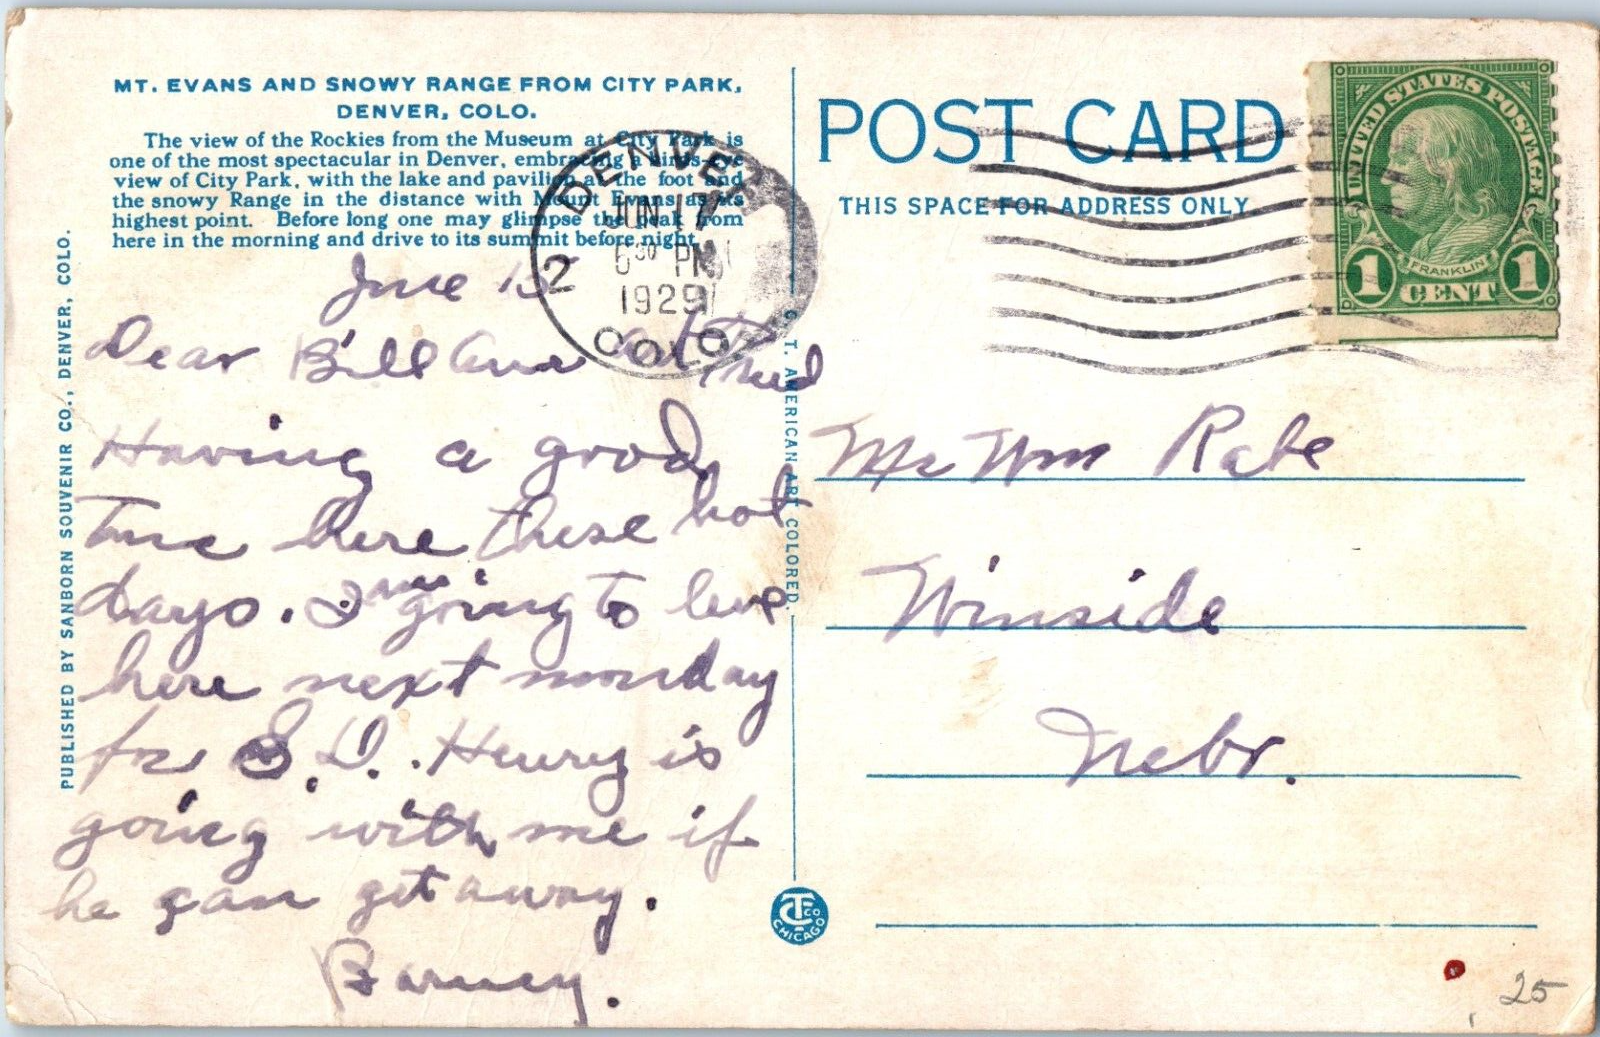 MT. EVANS AND SNOWY RANGE FROM CITY PARK,
DENVER, COLO.
The view of the Rockies from the Museum at City Park is
one of the most spectacular in Denver, embracing a birds-eye
view of City Park, with the lake and pavilion at the foot and
the snowy Range in the distance with Mount Evans as its
highest point. Before long one may glimpse the peak from
here in the morning and drive to its summit before night.
PUBLISHED BY SANBORN SOUVENIR CO., DENVER, COLO.
DENVER
JUN 17
PM
1929
2
COLO.
June 15
Dear Bill
Having a good
Time here these hot
days. I am going to leve
here next monday
for S.D. Henry is
going with me if
he can get away.
Barney.
C. T. AMERICAN ART COLORED.
CT CO
CHICAGO
POST CARD
THIS SPACE FOR ADDRESS ONLY
UNITED STATES POSTAGE
FRANKLIN
1 CENT 1
Mr Wm Rabe
Winside
Nebr.
25